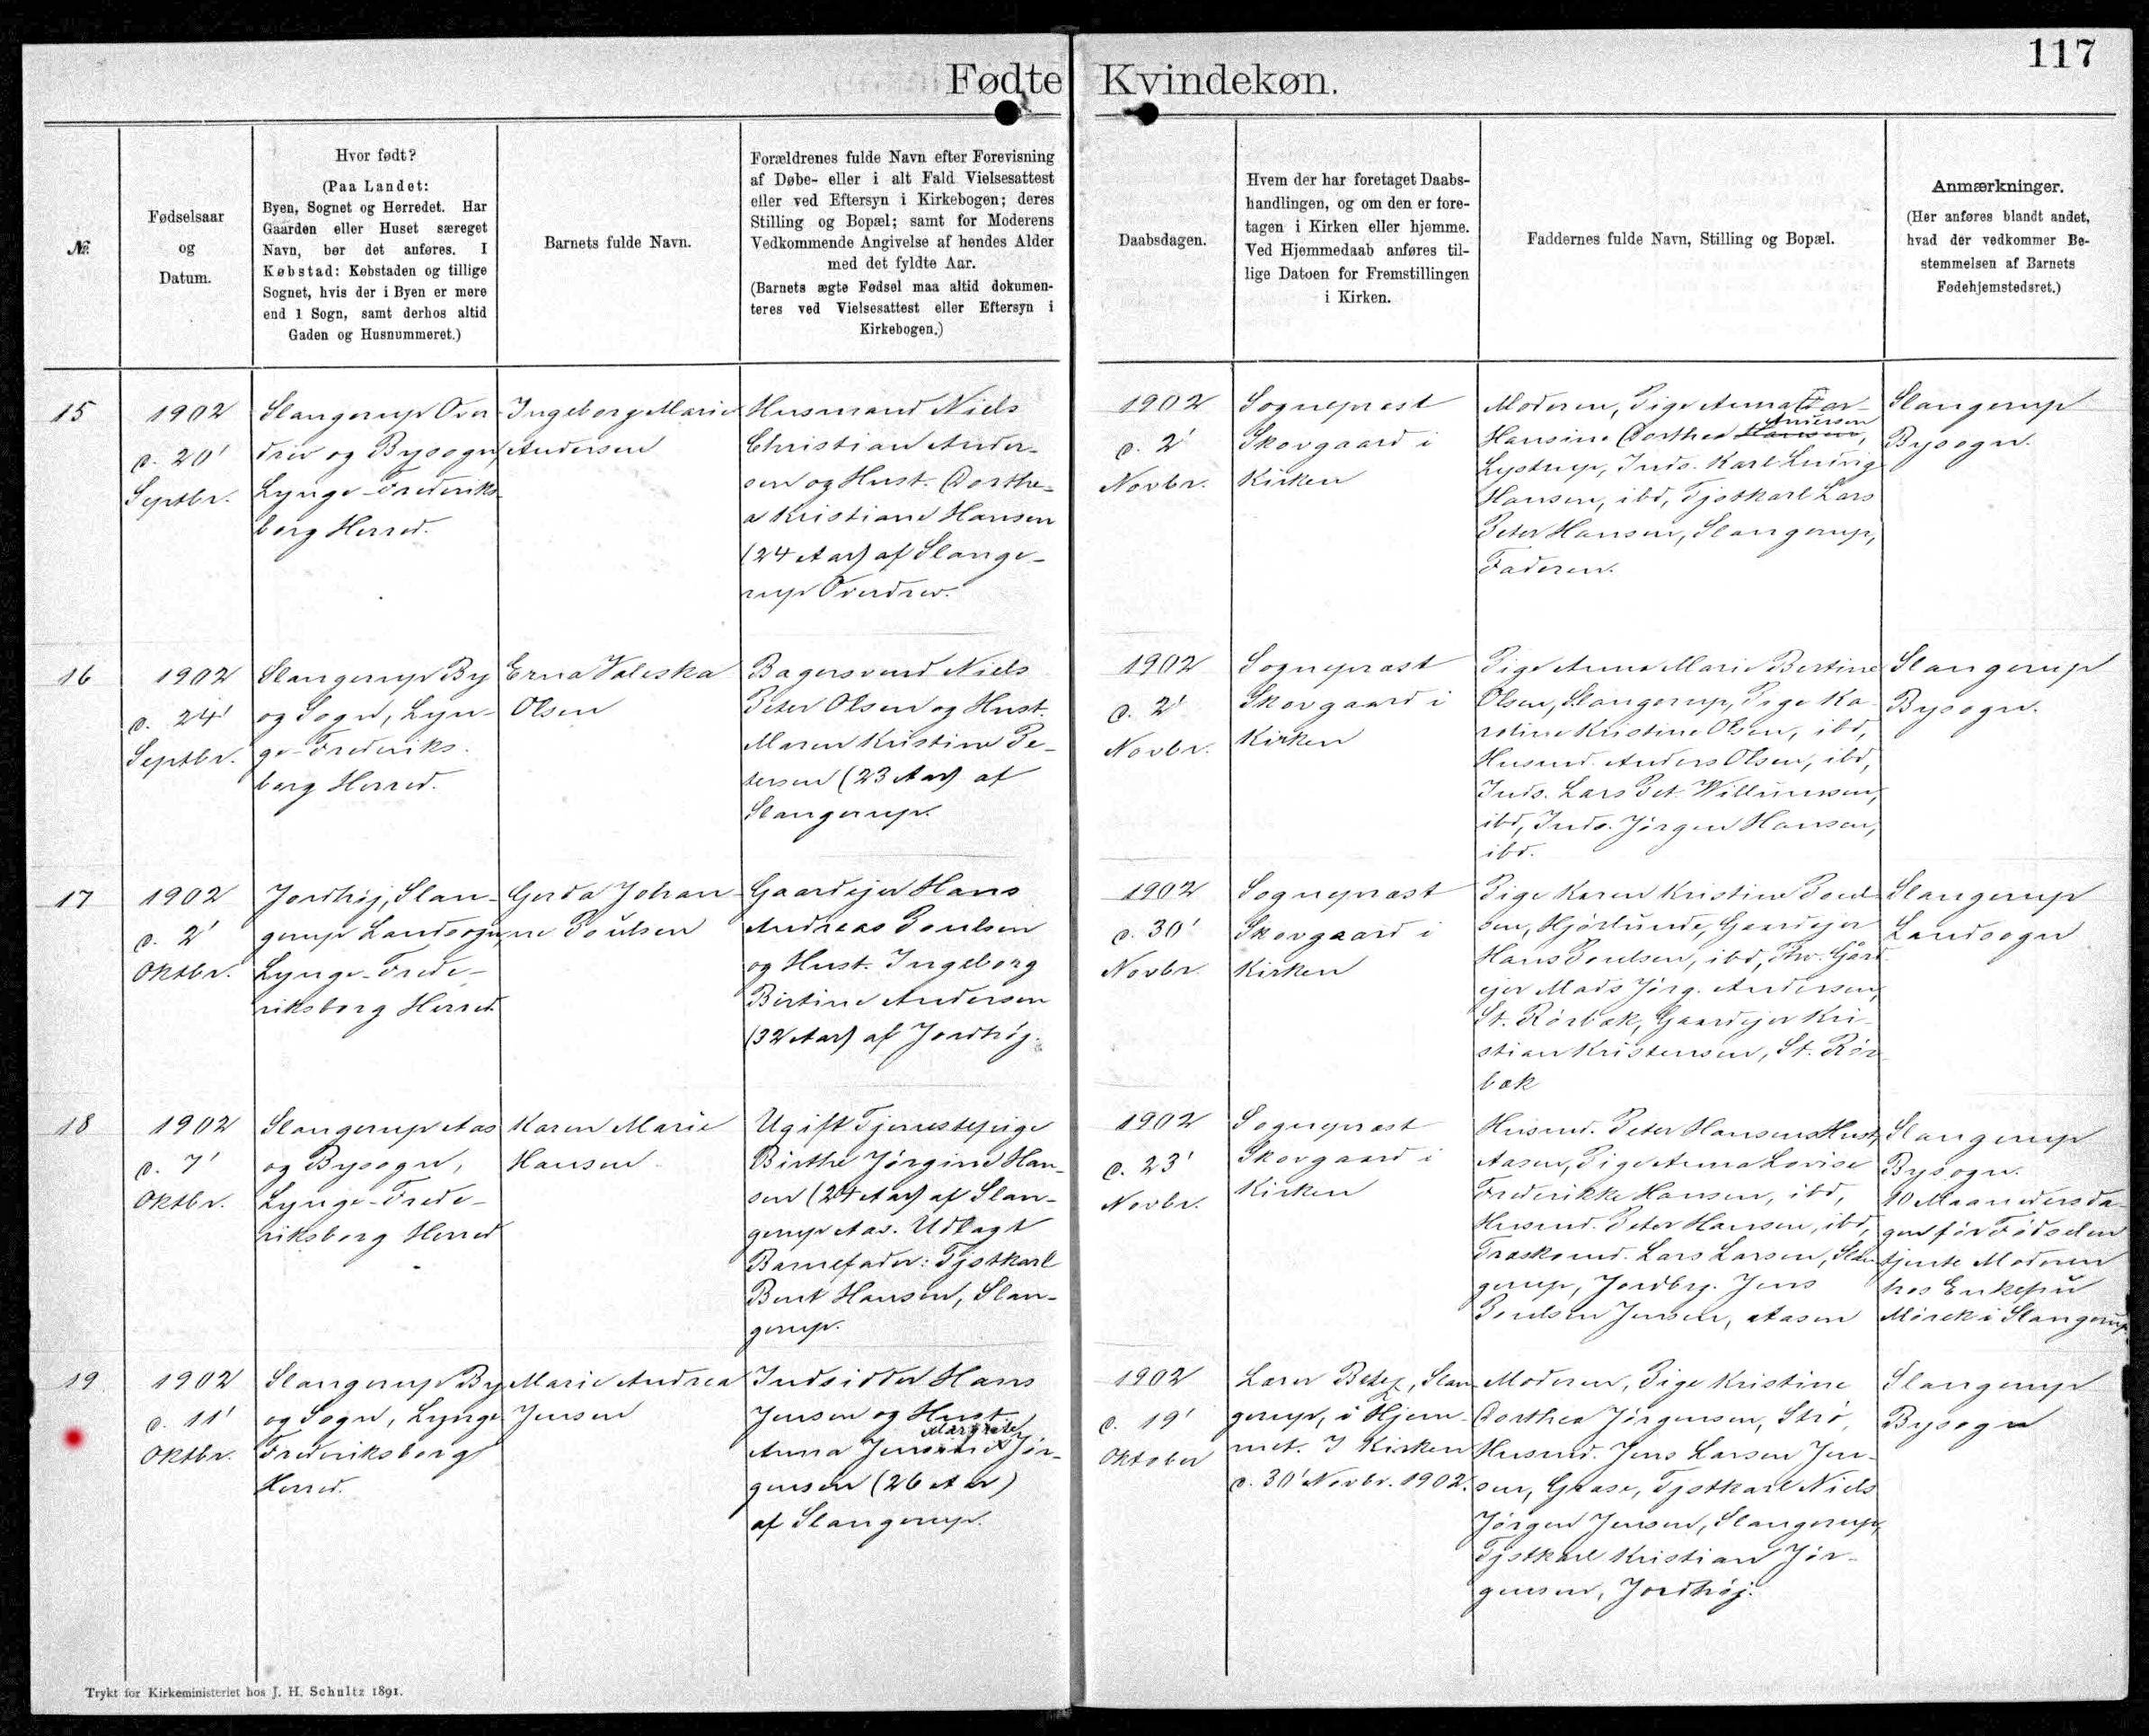 117
Fødte Kvindekøn.
№
Fødselsaar
og
Datum.
Hvor født?
(Paa Landet:
Byen, Sognet og Herredet. Har
Gaarden eller Huset særeget
Navn, bør det anføres. I
Købstad: Købstaden og tillige
Sognet, hvis der i Byen er mere
end 1 Sogn, samt derhos altid
Gaden og Husnummeret.)
Barnets fulde Navn.
Forældrenes fulde Navn efter Forevisning
af Døbe- eller i alt Fald Vielsesattest
eller ved Eftersyn i Kirkebogen; deres
Stilling og Bopæl; samt for Moderens
Vedkommende Angivelse af hendes Alder
med det fyldte Aar.
(Barnets ægte Fødsel maa altid dokumen-
teres ved Vielsesattest eller Eftersyn i
Kirkebogen.)
Daabsdagen.
Hvem der har foretaget Daabs-
handlingen, og om den er fore-
tagen i Kirken eller hjemme.
Ved Hjemmedaab anføres til-
lige Datoen for Fremstillingen
i Kirken.
Faddernes fulde Navn, Stilling og Bopæl.
Anmærkninger.
(Her anføres blandt andet,
hvad der vedkommer Be-
stemmelsen af Barnets
Fødehjemstedsret.)
15
1902
d. 20'
Septbr.
Slangerup Over-
drev og Bysogn,
Lynge-Frederiks-
borg Herred.
Ingeborg Marie
Andersen
Husmand Niels
Christian Ander-
sen og Hust. Dorthe-
a Kristiane Hansen
(24 Aar) af Slange-
rup Overdrev.
1902
d. 2'
Novbr.
Sognepræst
Skovgaard i
Kirken
Moderen, Pige Anna
Hansine Dorthea Hansen,
Andersen
Lystrup, Inds. Karl Ludvig
Hansen, ibd, Tjstkarl Lars
Peter Hansen, Slangerup,
Faderen.
Slangerup
Bysogn.
16
1902
d. 24'
Septbr.
Slangerup By
og Sogn, Lyn-
ge-Frederiks-
borg Herred.
Erna Valeska
Olsen
Bagersvend Niels
Peter Olsen og Hust.
Maren Kristine Pe-
tersen (23 Aar) af
Slangerup.
1902
d. 2'
Novbr.
Sognepræst
Skovgaard i
Kirken
Pige Anna Marie Bertine
Olsen, Slangerup, Pige Ka-
roline Kristine Olsen, ibd,
Husmd. Anders Olsen, ibd,
Inds. Lars Pet. Willumsen,
ibd, Inds. Jørgen Hansen,
ibd.
Slangerup
Bysogn.
17
1902
d. 2'
Oktbr.
Jordhøj, Slan-
gerup Landsogn
Lynge-Frede-
riksborg Herred.
Gerda Johan-
ne Poulsen
Gaardejer Hans
Andreas Poulsen
og Hust. Ingeborg
Birtine Andersen
(32 Aar) af Jordhøj.
1902
d. 30'
Novbr.
Sognepræst
Skovgaard i
Kirken
Pige Karen Kristine Poul-
sen, Hjørlunde, Gaardejer
Hans Poulsen, ibd, Fhv. Gård-
ejer Mads Jørg. Andersen,
St. Rørbæk, Gaardejer Kri-
stian Kristensen, St. Rør-
bæk
Slangerup
Landsogn
18
1902
d. 7'
Oktbr.
Slangerup Aas
og Bysogn,
Lynge-Frede-
riksborg Herred
Karen Marie
Hansen
Ugift Tjenestepige
Birthe Jørgine Han-
sen (24 Aar) af Slan-
gerup Aas. Udlagt
Barnefader: Tjstkarl
Bent Hansen, Slan-
gerup.
1902
d. 23'
Novbr.
Sognepræst
Skovgaard i
Kirken
Husmd. Peter Hansens Hust,
Aasen, Pige Anna Lovise
Frederikke Hansen, ibd,
Husmd. Peter Hansen, ibd,
Træskomd. Lars Larsen, Slan-
gerup, Jordbrg. Jens
Poulsen Jensen, Aasen
Slangerup
Bysogn.
10 Maanedersda-
gen før Fødselen
tjente Moderen
hos Enkefru
Mørck i Slangerup
19
1902
d. 11'
Oktbr.
Slangerup By
og Sogn, Lynge
Frederiksborg
Herred.
Marie Andrea
Jensen
Indsidder Hans
Jensen og Hust.
Margrete
Anna Jør-
gensen (26 Aar)
af Slangerup.
1902
d. 19'
Oktober
Lærer Slan-
gerup, i Hjem-
met. I Kirken
d. 30' Novbr. 1902.
Moderen, Pige Kristine
Dorthea Jørgensen, Strø,
Husmd. Jens Larsen Jen-
sen, Græse, Tjstkarl Niels
Jørgen Jensen, Slangerup,
Tjstkarl Kristian Jør-
gensen, Jordhøj.
Slangerup
Bysogn
Trykt for Kirkeministeriet hos J. H. Schultz 1891.